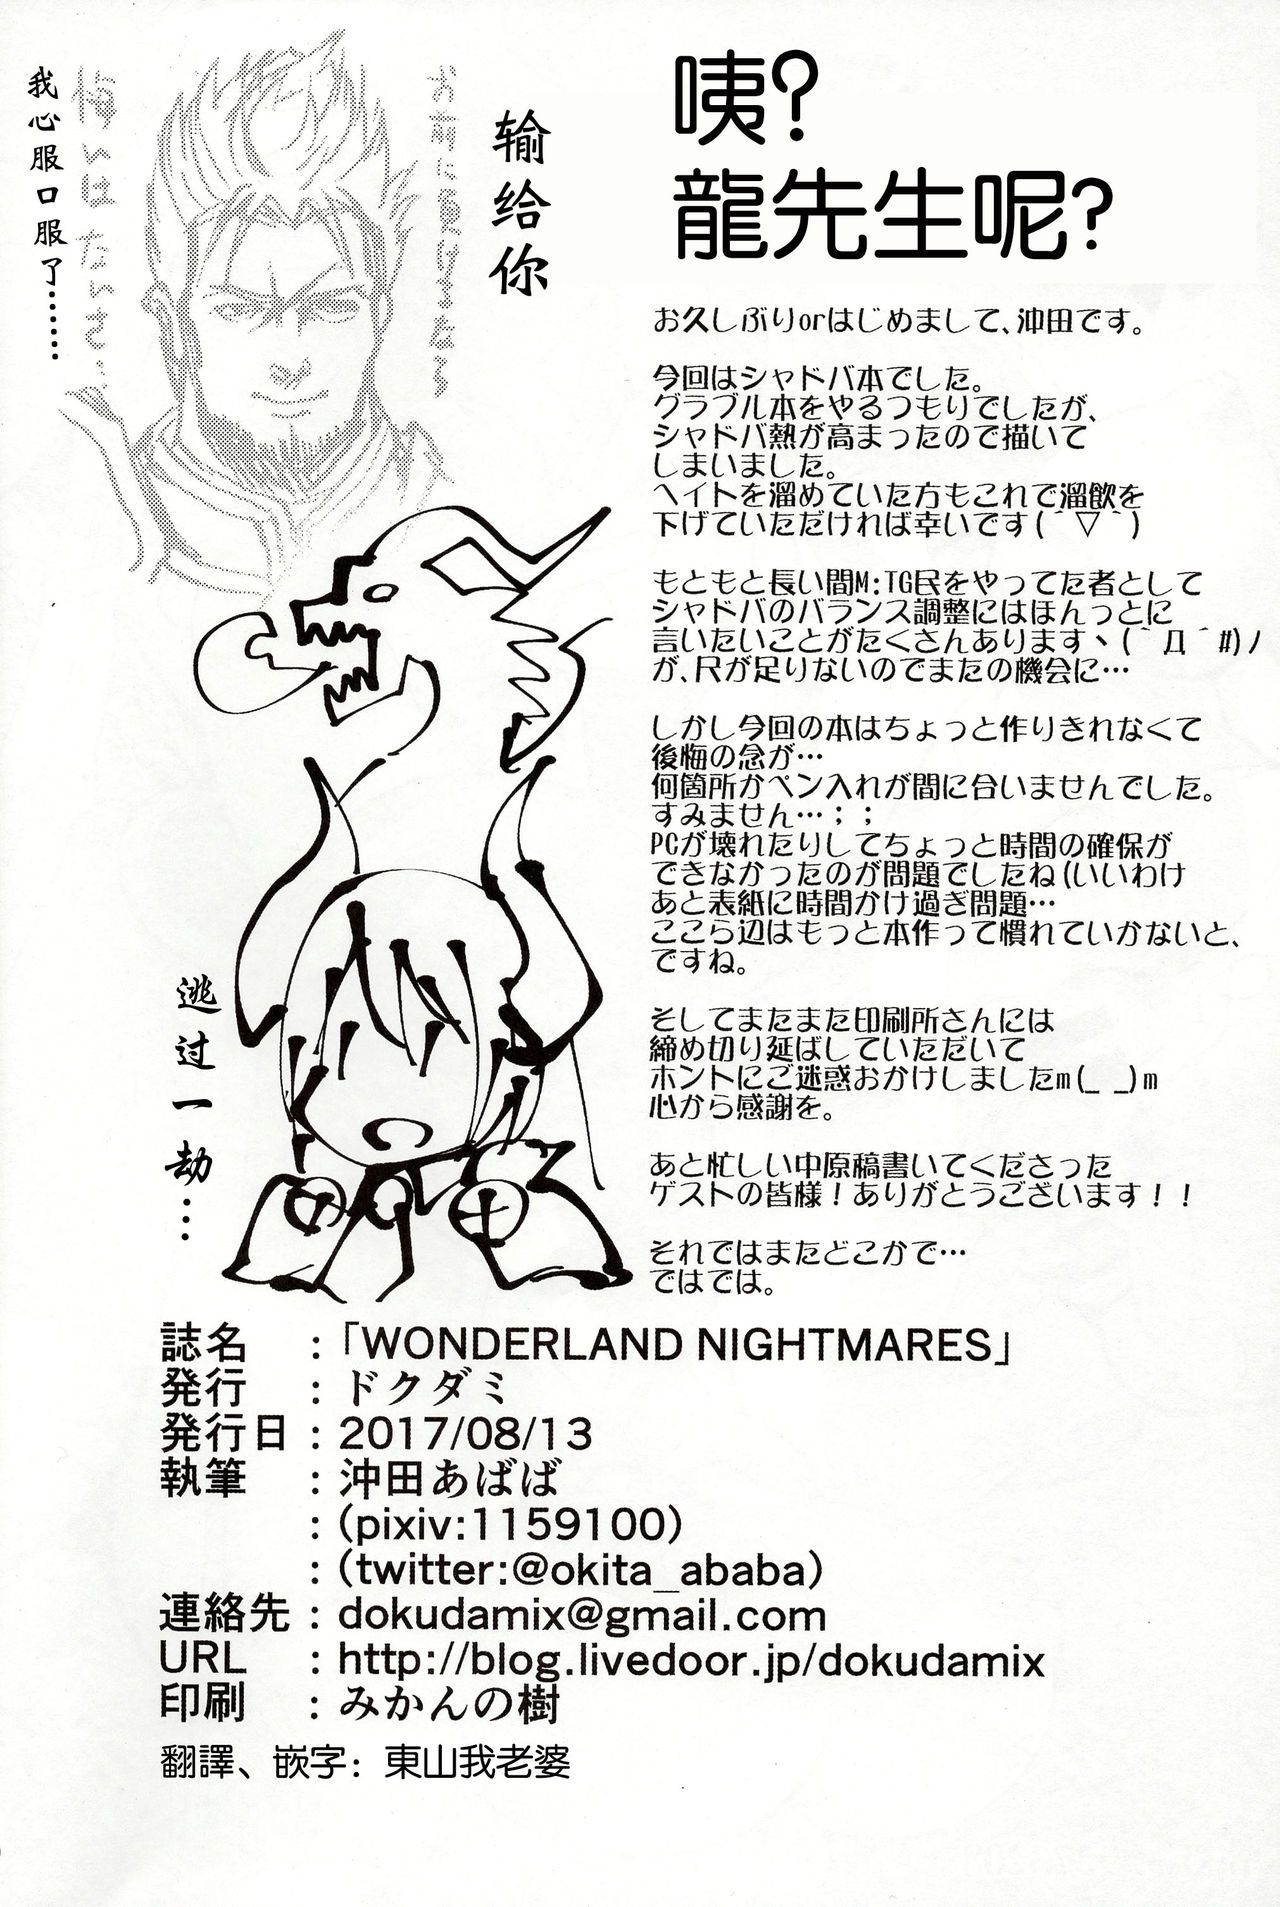 咦?
龍先生呢?
输给你
我心服口服了……
悔いはないさ…
お久しぶりorはじめまして、沖田です。
今回はシャドバ本でした。
グラブル本をやるつもりでしたが、
シャドバ熱が高まったので描いて
しまいました。
ヘイトを溜めていた方もこれで溜飲を
下げていただければ幸いです(´▽`)
もともと長い間M:TG民をやってた者として
シャドバのバランス調整にはほんっとに
言いたいことがたくさんありますヽ(`Д´#)ﾉ
が、尺が足りないのでまたの機会に…
しかし今回の本はちょっと作りきれなくて
後悔の念が…
何箇所かペン入れが間に合いませんでした。
すみません…；；
PCが壊れたりしてちょっと時間の確保が
できなかったのが問題でしたね(いいわけ
あと表紙に時間かけ過ぎ問題…
ここら辺はもっと本作って慣れていかないと、
ですね。
そしてまたまた印刷所さんには
締め切り延ばしていただいて
ホントにご迷惑おかけしましたm(_ _)m
心から感謝を。
あと忙しい中原稿書いてくださった
ゲストの皆様！ありがとうございます！！
それではまたどこかで…
ではでは。
逃过一劫…
誌名　:「WONDERLAND NIGHTMARES」
発行　: ドクダミ
発行日 : 2017/08/13
執筆　: 沖田あばば
: (pixiv:1159100)
: (twitter:@okita_ababa)
連絡先 : dokudamix@gmail.com
URL　: http://blog.livedoor.jp/dokudamix
印刷　: みかんの樹
翻譯、嵌字: 東山我老婆